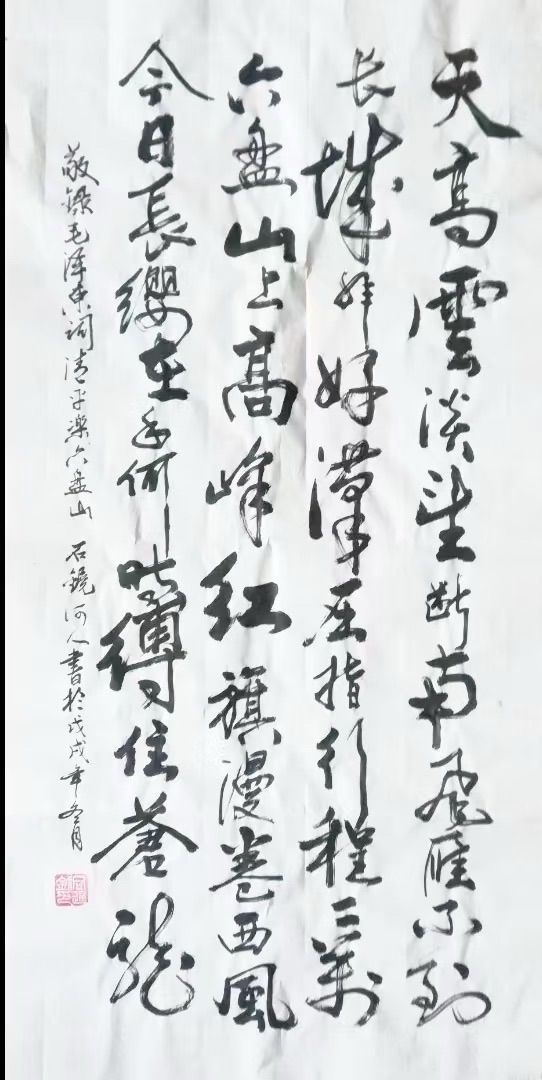 天高雲淡望断南飛雁不到
长城非好漢屈指行程二萬
六盘山上高峰红旗漫卷西風
今日長缨在手何时縛住蒼龙
敬錄毛泽东词清平樂六盘山 石鏡河人書於戊戌年冬月